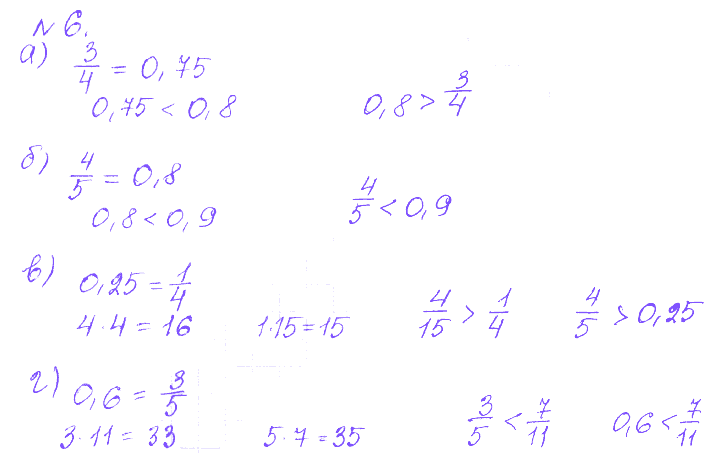 № 6.
а) 3/4 = 0,75
0,75 < 0,8 0,8 > 3/4
б) 4/5 = 0,8
0,8 < 0,9 4/5 < 0,9
в) 0,25 = 1/4
4·4 = 16 1·15 = 15 4/15 > 1/4 4/5 > 0,25
г) 0,6 = 3/5
3·11 = 33 5·7 = 35 3/5 < 7/11 0,6 < 7/11